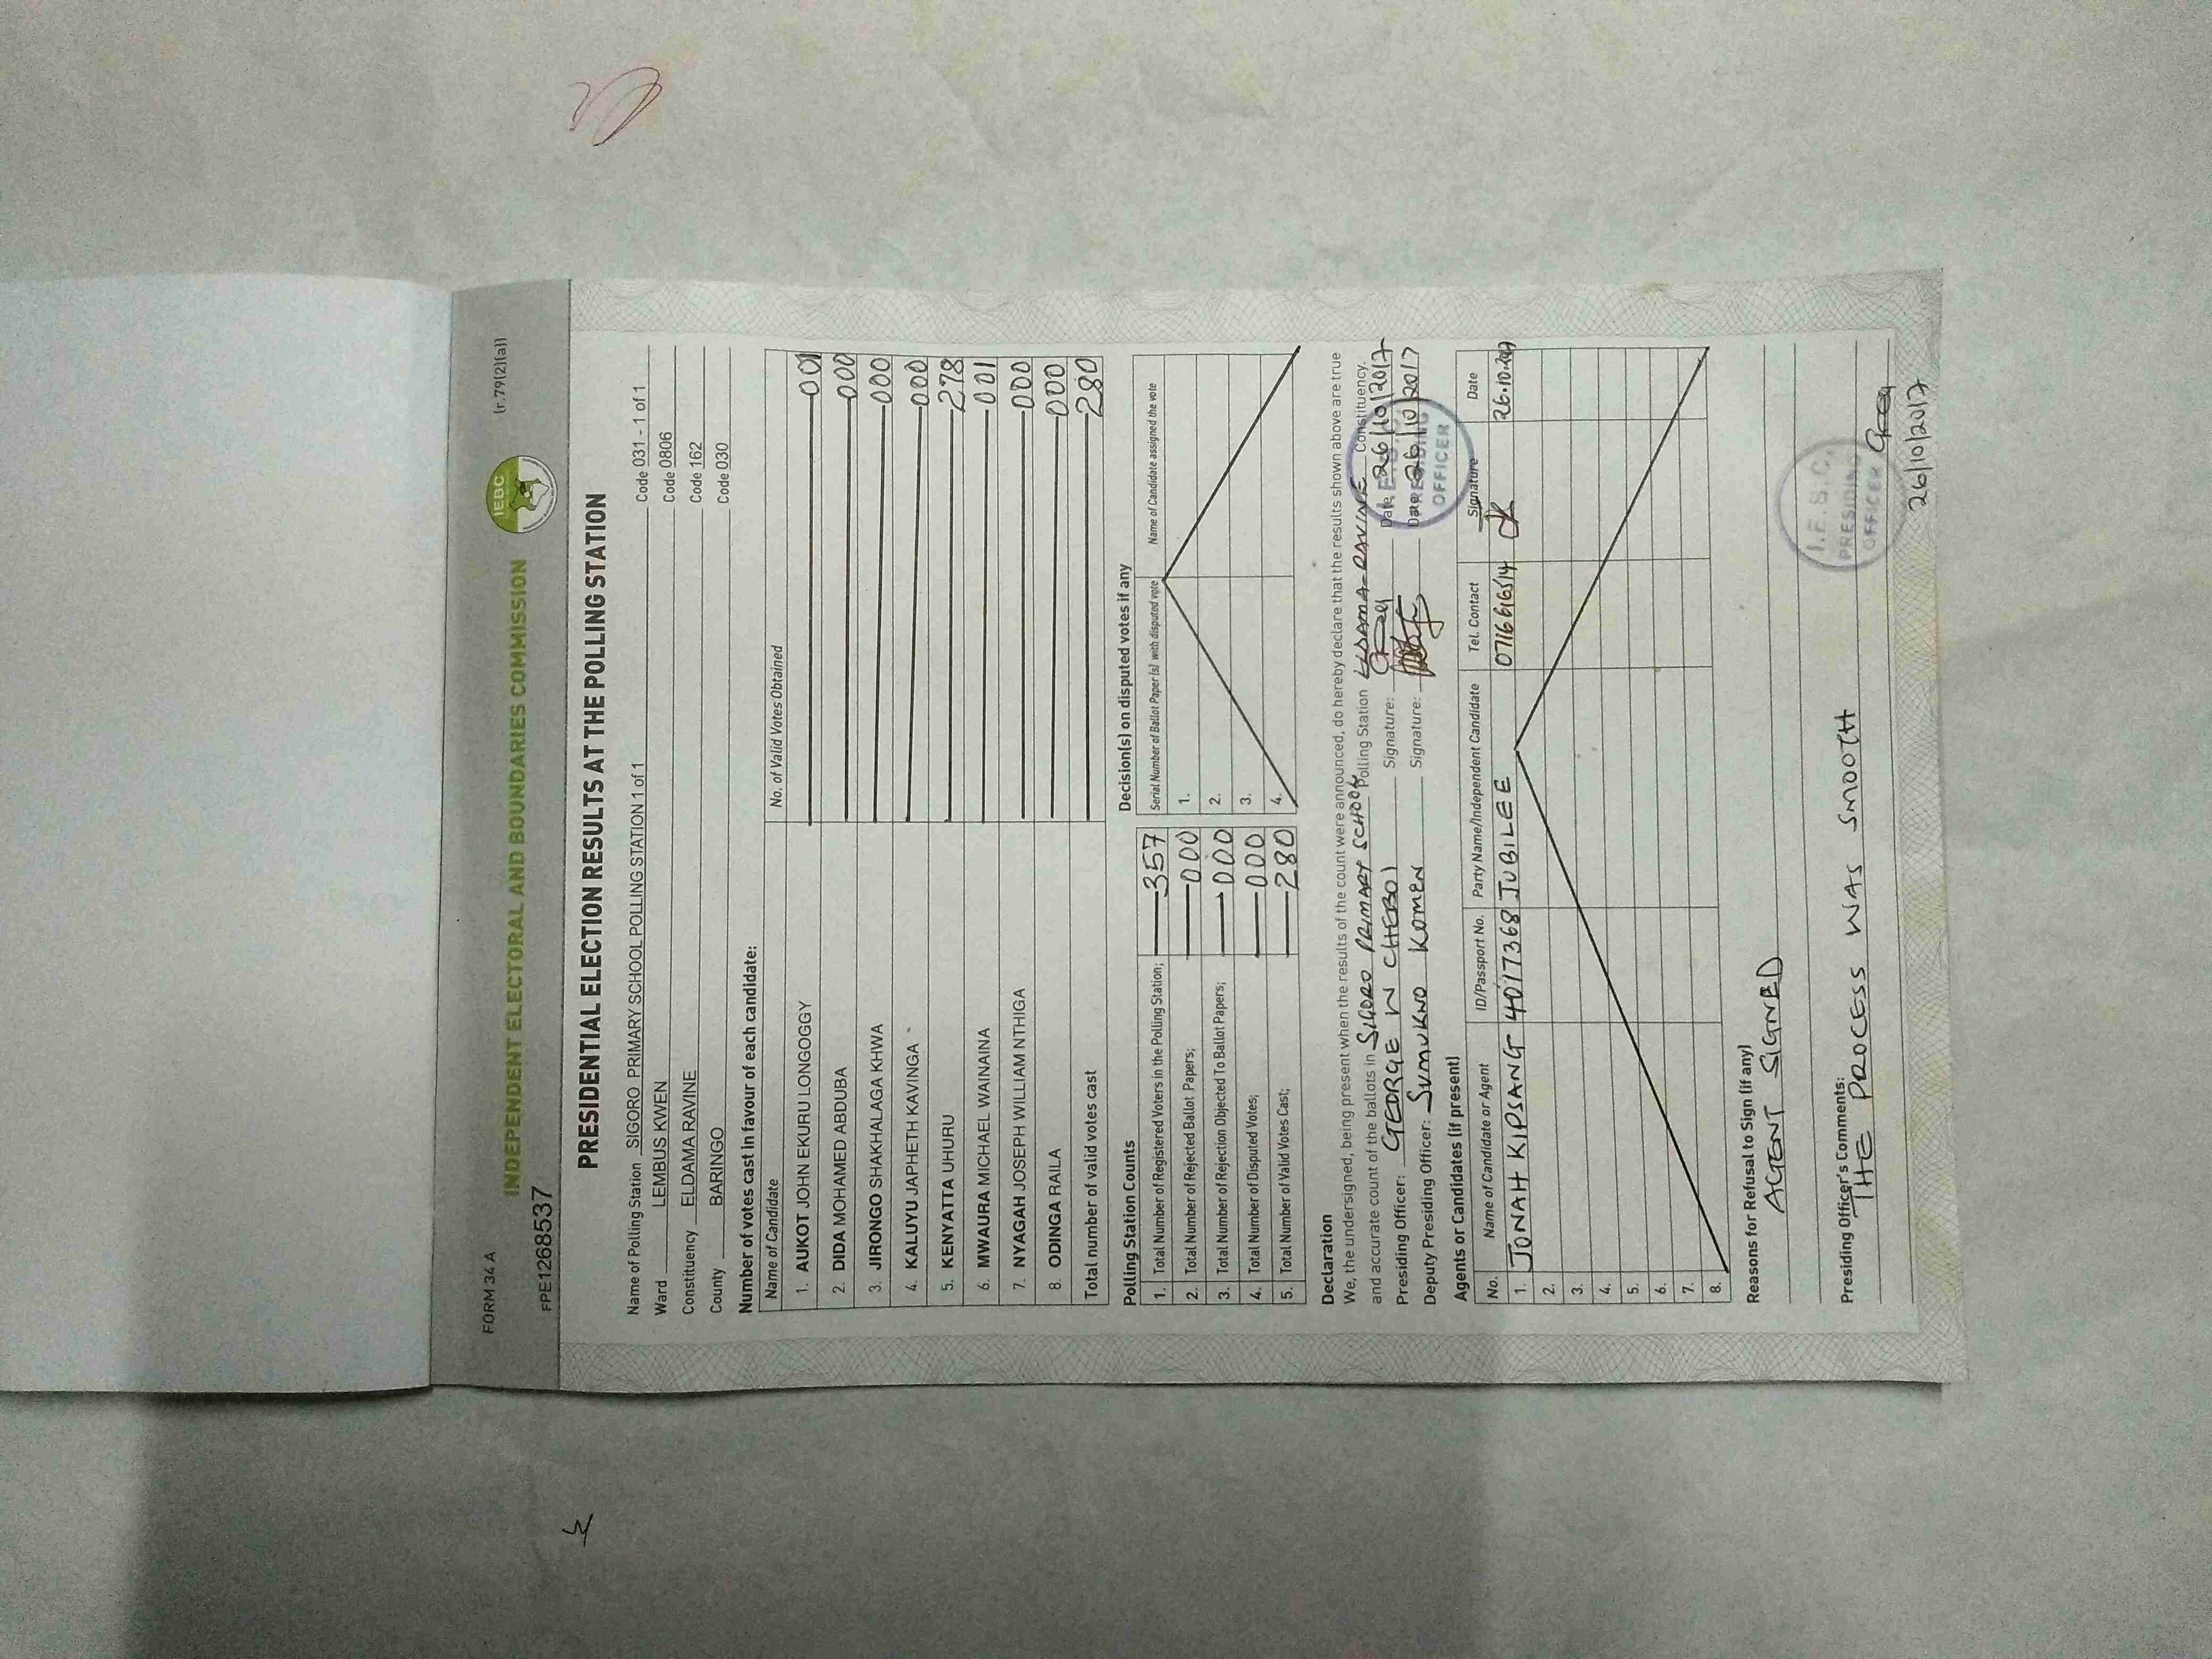 FORM 34 A
(r.79(2)(a))
INDEPENDENT ELECTORAL AND BOUNDARIES COMMISSION
IEBC
FPE1268537
PRESIDENTIAL ELECTION RESULTS AT THE POLLING STATION
Name of Polling Station SIGORO PRIMARY SCHOOL POLLING STATION 1 of 1 Code 031 - 1 of 1
Ward LEMBUS KWEN Code 0806
Constituency ELDAMA RAVINE Code 162
County BARINGO Code 030
Number of votes cast in favour of each candidate:
Name of Candidate No. of Valid Votes Obtained
1. AUKOT JOHN EKURU LONGOGGY 001
2. DIDA MOHAMED ABDUBA 000
3. JIRONGO SHAKHALAGA KHWA 000
4. KALUYU JAPHETH KAVINGA 000
5. KENYATTA UHURU 278
6. MWAURA MICHAEL WAINAINA 001
7. NYAGAH JOSEPH WILLIAM NTHIGA 000
8. ODINGA RAILA 000
Total number of valid votes cast 280
Polling Station Counts
1. Total Number of Registered Voters in the Polling Station; 357
2. Total Number of Rejected Ballot Papers; 000
3. Total Number of Rejection Objected To Ballot Papers; 000
4. Total Number of Disputed Votes; 000
5. Total Number of Valid Votes Cast; 280
Decision(s) on disputed votes if any
Serial Number of Ballot Paper (s) with disputed vote Name of Candidate assigned the vote
1.
2.
3.
4.
Declaration
We, the undersigned, being present when the results of the count were announced, do hereby declare that the results shown above are true
and accurate count of the ballots in SIGORO PRIMARY SCHOOL Polling Station ELDAMA-RAVINE Constituency.
Presiding Officer: GEORGE W CHEBOI Signature: Date 26/10/2017
Deputy Presiding Officer: SUMUKNO KOMEN Signature: Date 26/10/2017
PRESIDING
OFFICER
Agents or Candidates (if present)
No. Name of Candidate or Agent ID/Passport No. Party Name/Independent Candidate Tel. Contact Signature Date
1. JONAH KIPSANG 4017368 JUBILEE 0716616514 26.10.2017
2.
3.
4.
5.
6.
7.
8.
Reasons for Refusal to Sign (if any)
AGENT SIGNED
Presiding Officer's Comments:
THE PROCESS WAS SMOOTH
I.E.B.C.
PRESIDING
OFFICER
26/10/2017